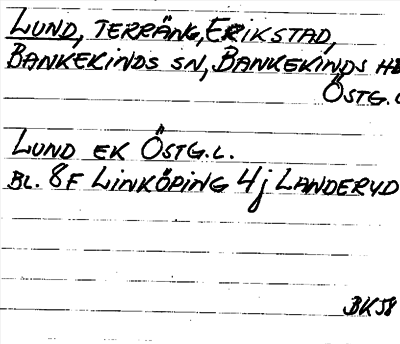 LUND, TERRÄNG, ERIKSTAD,
BANKEKINDS SN, BANKEKINDS HD
ÖSTG.L
LUND EK ÖSTG.L.
BL. 8F LINKÖPING 4j LANDERYD
BK58